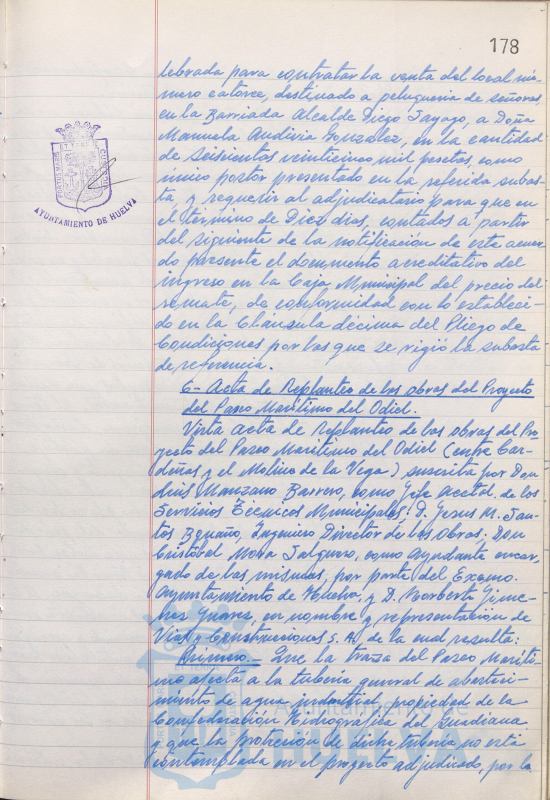 178
lebrada para contratar la venta del local nú-
mero catorce, destinado a peluquería de señoras,
en la Barriada Alcalde Diego Sayago, a Doña
Manuela Audivia González, en la cantidad
de Seiscientas veinticinco mil pesetas, como
único postor presentado en la referida subas-
ta, y requerir al adjudicatario para que en
el término de Diez días, contados a partir
del siguiente de la notificación de este acuer-
do presente el documento acreditativo del
ingreso en la Caja Municipal del precio del
remate, de conformidad con lo estableci-
do en la Cláusula décima del Pliego de
Condiciones por las que se rigió la subasta
de referencia.
6- Acta de Replanteo de las obras del Proyecto
del Paseo Marítimo del Odiel.
Vista acta de Replanteo de las obras del Pro-
yecto del Paseo Marítimo del Odiel (entre Car-
deñas y el Molino de la Vega) suscrita por Don
Luis Manzano Barrero, como Jefe Acctal. de los
Servicios Técnicos Municipales; D. Jesús M. San-
tos, Ingeniero Director de las Obras; Don
Cristóbal Mora Salguero, como Ayudante encar-
gado de las mismas, por parte del Excmo.
Ayuntamiento de Huelva, y D. Norberto Jime-
nez, en nombre y representación de
Vias y Construcciones S.A, de la cual resulta:
Primero.- Que la traza del Paseo Maríti-
mo afecta a la tubería general de abasteci-
miento de agua industrial, propiedad de la
Confederación Hidrográfica del Guadiana
y que la protección de dicha tubería no está
contemplada en el proyecto adjudicado, por la
AYUNTAMIENTO DE HUELVA